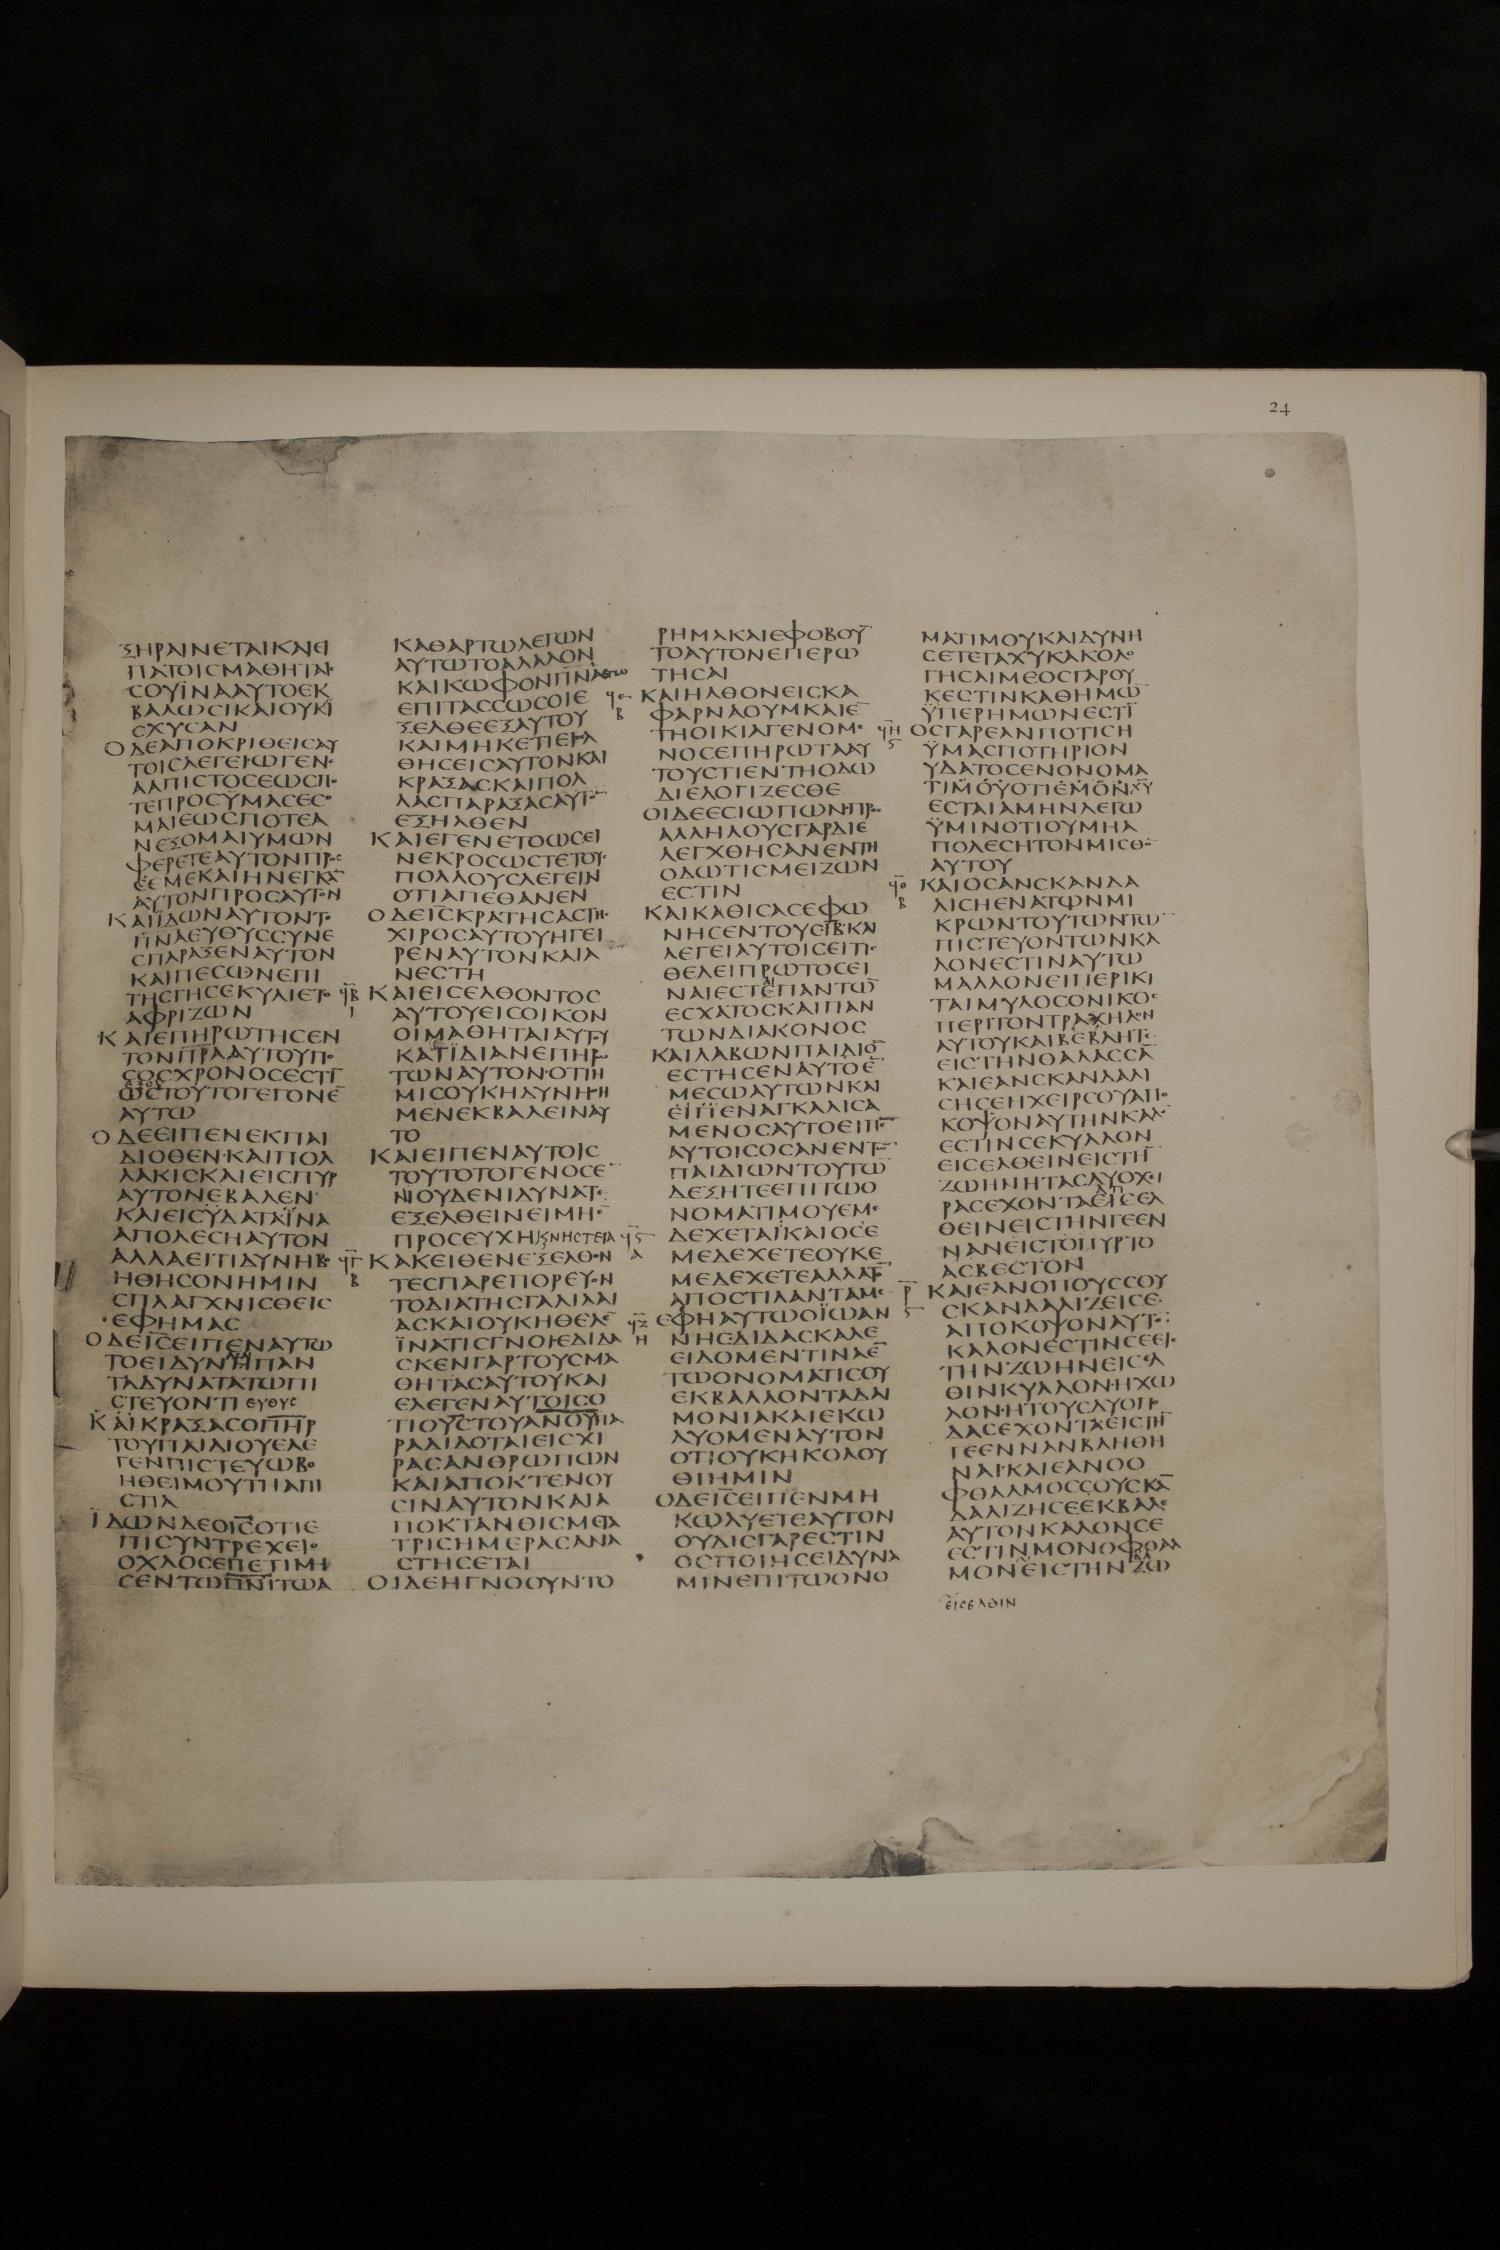 24
ΞΗΡΑΙΝΕΤΑΙΚΑΙΕΙ
ΠΑΤΟΙCΜΑΘΗΤΑΙ
CΟΥΪΝΑΑΥΤΟΕΚ
ΒΑΛΩCΙΚΑΙΟΥΚΙ
CΧΥCΑΝ
ΟΔΕΑΠΟΚΡΙΘΕΙCΑΥ
ΤΟΙCΛΕΓΕΙΩΓΕΝΕ
ΑΑΠΙCΤΟCΕΩCΠΟ
ΤΕΠΡΟCΫΜΑCΕCΟ
ΜΑΙΕΩCΠΟΤΕΑ
ΝΕΞΟΜΑΙΥΜΩΝ
ΦΕΡΕΤΕΑΥΤΟΝΠΡΟC
ΕΜΕΚΑΙΗΝΕΓΚΑ̅
ΑΥΤΟΝΠΡΟCΑΥΤΟΝ
ΚΑΙΪΔΩΝΑΥΤΟΝΤΟ
Π̅Ν̅ΑΕΥΘΥCCΥΝΕ
CΠΑΡΑΞΕΝΑΥΤΟΝ
ΚΑΙΠΕCΩΝΕΠΙ
ΤΗCΓΗCΕΚΥΛΙΕΤΟ
ΑΦΡΙΖΩΝ
ΚΑΙΕΠΗΡΩΤΗCΕΝ
ΤΟΝΠ̅Ρ̅Α̅ΑΥΤΟΥΠΟ
CΟCΧΡΟΝΟCΕCΤΙ̅
ΩCΤΟΥΤΟΓΕΓΟΝΕ̅
ΑΥΤΩ
ΟΔΕΕΙΠΕΝΕΚΠΑΙ
ΔΙΟΘΕΝ·ΚΑΙΠΟΛ
ΛΑΚΙCΚΑΙΕΙCΠΥΡ
ΑΥΤΟΝΕΒΑΛΕΝ
ΚΑΙΕΙCΫΔΑΤΑΪΝΑ
ΑΠΟΛΕCΗΑΥΤΟΝ
ΑΛΛΑΕΙΤΙΔΥΝΗΒΟ
ΗΘΗCΟΝΗΜΙΝ
CΠΛΑΓΧΝΙCΘΕΙC
ΕΦΗΜΑC
ΟΔΕΙ̅C̅ΕΙΠΕΝΑΥΤΩ
ΤΟΕΙΔΥΝΗΠΑΝ
ΤΑΔΥΝΑΤΑΤΩΠΙ
CΤΕΥΟΝΤΙ ΕΥΘΥC
ΚΑΙΚΡΑΞΑCΟΠ̅Η̅Ρ̅
ΤΟΥΠΑΙΔΙΟΥΕΛΕ
ΓΕΝΠΙCΤΕΥΩΒΟ
ΗΘΕΙΜΟΥΤΗΑΠΙ
CΤΙΑ
ΪΔΩΝΔΕΟΙ̅C̅ΟΤΙΕ
ΠΙCΥΝΤΡΕΧΕΙΟ
ΟΧΛΟCΕΠΕΤΙΜΗ
CΕΝΤΩΠ̅Ν̅Ι̅ΤΩΑ
ΚΑΘΑΡΤΩΛΕΓΩΝ
ΑΥΤΩΤΟΑΛΑΛΟΝ
ΚΑΙΚΩΦΟΝΠ̅Ν̅Α̅ΕΓΩ
ΕΠΙΤΑCCΩCΟΙΕ
ΞΕΛΘΕΕΞΑΥΤΟΥ
ΚΑΙΜΗΚΕΤΙΕΙCΕΛ
ΘΗCΕΙCΑΥΤΟΝΚΑΙ
ΚΡΑΞΑCΚΑΙΠΟΛ
ΛΑCΠΑΡΑΞΑCΑΥΤΟ̅
ΕΞΗΛΘΕΝ
ΚΑΙΕΓΕΝΕΤΟΩCΕΙ
ΝΕΚΡΟCΩCΤΕΤΟΥC
ΠΟΛΛΟΥCΛΕΓΕΙΝ
ΟΤΙΑΠΕΘΑΝΕΝ
ΟΔΕΙ̅C̅ΚΡΑΤΗCΑCΤΗC
ΧΙΡΟCΑΥΤΟΥΗΓΕΙ
ΡΕΝΑΥΤΟΝΚΑΙΑ
ΝΕCΤΗ
ΚΑΙΕΙCΕΛΘΟΝΤΟC
ΑΥΤΟΥΕΙCΟΙΚΟΝ
ΟΙΜΑΘΗΤΑΙΑΥΤΟΥ
ΚΑΤΪΔΙΑΝΕΠΗΡΩ
ΤΩΝΑΥΤΟΝ·ΟΤΙΗ
ΜΙCΟΥΚΗΔΥΝΗΘΗ
ΜΕΝΕΚΒΑΛΕΙΝΑΥ
ΤΟ
ΚΑΙΕΙΠΕΝΑΥΤΟΙC
ΤΟΥΤΟΤΟΓΕΝΟCΕ̅
ΝΟΥΔΕΝΙΔΥΝΑΤΑΙ
ΕΞΕΛΘΕΙΝΕΙΜΗΕ̅
ΠΡΟCΕΥΧΗ ΚϚΝΗCΤΕΙΑ
ΚΑΚΕΙΘΕΝΕΞΕΛΘΟΝ
ΤΕCΠΑΡΕΠΟΡΕΥΟΝ
ΤΟΔΙΑΤΗCΓΑΛΙΛΑΙ
ΑCΚΑΙΟΥΚΗΘΕΛΕ̅
ΪΝΑΤΙCΓΝΟΙΕΔΙΔΑ
CΚΕΝΓΑΡΤΟΥCΜΑ
ΘΗΤΑCΑΥΤΟΥΚΑΙ
ΕΛΕΓΕΝΑΥΤΟΙCΟ
ΤΙΟΥ̅C̅ΤΟΥΑ̅Ν̅Ο̅Υ̅ΠΑ
ΡΑΔΙΔΟΤΑΙΕΙCΧΙ
ΡΑCΑΝΘΡΩΠΩΝ
ΚΑΙΑΠΟΚΤΕΝΟΥ
CΙΝΑΥΤΟΝΚΑΙΑ
ΠΟΚΤΑΝΘΙCΜΕΤΑ
ΤΡΙCΗΜΕΡΑCΑΝΑ
CΤΗCΕΤΑΙ
ΟΙΔΕΗΓΝΟΟΥΝΤΟ
ΡΗΜΑΚΑΙΕΦΟΒΟΥ̅
ΤΟΑΥΤΟΝΕΠΕΡΩ
ΤΗCΑΙ
ΚΑΙΗΛΘΟΝΕΙCΚΑ
ΦΑΡΝΑΟΥΜΚΑΙΕ̅
ΤΗΟΙΚΙΑΓΕΝΟΜΕ
ΝΟCΕΠΗΡΩΤΑΑΥ
ΤΟΥCΤΙΕΝΤΗΟΔΩ
ΔΙΕΛΟΓΙΖΕCΘΕ
ΟΙΔΕΕCΙΩΠΩΝΠΡΟC
ΑΛΛΗΛΟΥCΓΑΡΔΙΕ
ΛΕΓΧΘΗCΑΝΕΝΤΗ
ΟΔΩΤΙCΜΕΙΖΩΝ
ΕCΤΙΝ
ΚΑΙΚΑΘΙCΑCΕΦΩ
ΝΗCΕΝΤΟΥCΙ̅Β̅ΚΑΙ
ΛΕΓΕΙΑΥΤΟΙCΕΙΤΙC
ΘΕΛΕΙΠΡΩΤΟCΕΙ
ΝΑΙΕCΤΕΠΑΝΤΩ̅
ΕCΧΑΤΟCΚΑΙΠΑΝ
ΤΩΝΔΙΑΚΟΝΟC
ΚΑΙΛΑΒΩΝΠΑΙΔΙΟ̅
ΕCΤΗCΕΝΑΥΤΟΕ̅
ΜΕCΩΑΥΤΩΝΚΑΙ
ΕΝΑΓΚΑΛΙCΑ
ΜΕΝΟCΑΥΤΟΕΙΠΕ̅
ΑΥΤΟΙCΟCΑΝΕΝΤΩ̅
ΠΑΙΔΙΩΝΤΟΥΤΩ̅
ΔΕΞΗΤΕΕΠΙΤΩΟ
ΝΟΜΑΤΙΜΟΥΕΜΕ
ΔΕΧΕΤΑΙΚΑΙΟCΕ
ΜΕΔΕΧΕΤΕΟΥΚΕ
ΜΕΔΕΧΕΤΕΑΛΛΑΤΟ̅
ΑΠΟCΤΙΛΑΝΤΑΜΕ
ΕΦΗΑΥΤΩΟΪΩΑΝ
ΝΗCΔΙΔΑCΚΑΛΕ
ΕΙΔΟΜΕΝΤΙΝΑΕ̅
ΤΩΟΝΟΜΑΤΙCΟΥ
ΕΚΒΑΛΛΟΝΤΑΔΑΙ
ΜΟΝΙΑΚΑΙΕΚΩ
ΛΥΟΜΕΝΑΥΤΟΝ
ΟΤΙΟΥΚΗΚΟΛΟΥ
ΘΙΗΜΙΝ
ΟΔΕΙ̅C̅ΕΙΠΕΝΜΗ
ΚΩΛΥΕΤΕΑΥΤΟΝ
ΟΥΔΙCΓΑΡΕCΤΙΝ
ΟCΠΟΙΗCΕΙΔΥΝΑ
ΜΙΝΕΠΙΤΩΟΝΟ
ΜΑΤΙΜΟΥΚΑΙΔΥΝΗ
CΕΤΕΤΑΧΥΚΑΚΟΛΟ
ΓΗCΑΙΜΕΟCΓΑΡΟΥ
ΚΕCΤΙΝΚΑΘΗΜΩ̅
ΫΠΕΡΗΜΩΝΕCΤΙ̅
ΟCΓΑΡΕΑΝΠΟΤΙCΗ
ΫΜΑCΠΟΤΗΡΙΟΝ
ΥΔΑΤΟCΕΝΟΝΟΜΑ
ΤΙΜΟΥΟΤΙΕΜΟΝΧ̅Υ̅
ΕCΤΑΙΑΜΗΝΛΕΓΩ
ΫΜΙΝΟΤΙΟΥΜΗΑ
ΠΟΛΕCΗΤΟΝΜΙCΘΟ̅
ΑΥΤΟΥ
ΚΑΙΟCΑΝCΚΑΝΔΑ
ΛΙCΗΕΝΑΤΩΝΜΙ
ΚΡΩΝΤΟΥΤΩΝΤΩ̅
ΠΙCΤΕΥΟΝΤΩΝΚΑ
ΛΟΝΕCΤΙΝΑΥΤΩ
ΜΑΛΛΟΝΕΙΠΕΡΙΚΙ
ΤΑΙΜΥΛΟCΟΝΙΚΟC
ΠΕΡΙΤΟΝΤΡΑΧΗΛΟΝ
ΑΥΤΟΥΚΑΙΒΕΒΛΗΤΑΙ
ΕΙCΤΗΝΘΑΛΑCCΑ̅
ΚΑΙΕΑΝCΚΑΝΔΑΛΙ
CΗCΕΗΧΕΙΡCΟΥΑΠΟ
ΚΟΨΟΝΑΥΤΗΝΚΑΛΟ̅
ΕCΤΙΝCΕΚΥΛΛΟΝ
ΕΙCΕΛΘΕΙΝΕΙCΤΗ̅
ΖΩΗΝΗΤΑCΔΥΟΧΕΙ
ΡΑCΕΧΟΝΤΑΕΙCΕΛ
ΘΕΙΝΕΙCΤΗΝΓΕΕΝ
ΝΑΝΕΙCΤΟΠΥΡΤΟ
ΑCΒΕCΤΟΝ
ΚΑΙΕΑΝΟΠΟΥCCΟΥ
CΚΑΝΔΑΛΙΖΕΙCΕ
ΑΠΟΚΟΨΟΝΑΥΤΟ̅
ΚΑΛΟΝΕCΤΙΝCΕΕΙC
ΤΗΝΖΩΗΝΕΙCΕΛ
ΘΙΝΚΥΛΛΟΝ·ΗΧΩ
ΛΟΝ·ΗΤΟΥCΔΥΟΠΟ
ΔΑCΕΧΟΝΤΑΕΙCΤΗ̅
ΓΕΕΝΝΑΝΒΛΗΘΗ
ΝΑΙ·ΚΑΙΕΑΝΟΟ
ΦΘΑΛΜΟCCΟΥCΚΑ̅
ΔΑΛΙΖΗCΕΕΚΒΑΛΕ
ΑΥΤΟΝΚΑΛΟΝCΕ
ΕCΤΙΝΜΟΝΟΦΘΑΛ
ΜΟΝΕΙCΤΗΝΖΩ
ΕΙCΕΛΘΙΝ